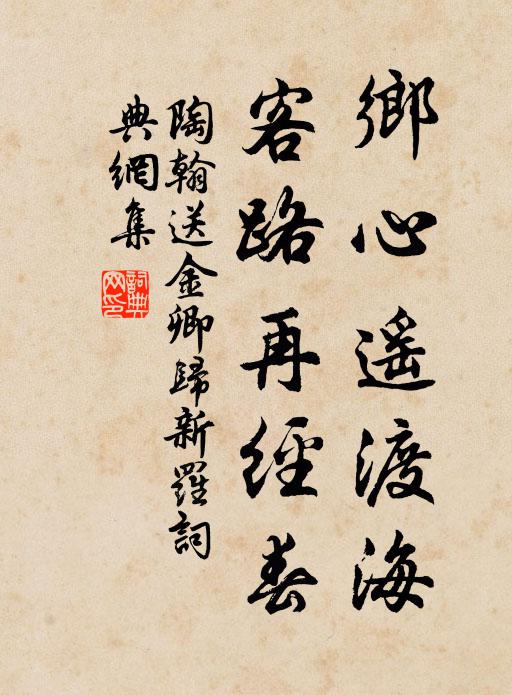 鄉心遥渡海
客路再經春
陶翰送金卿歸新羅詞
典網集
詞典网印